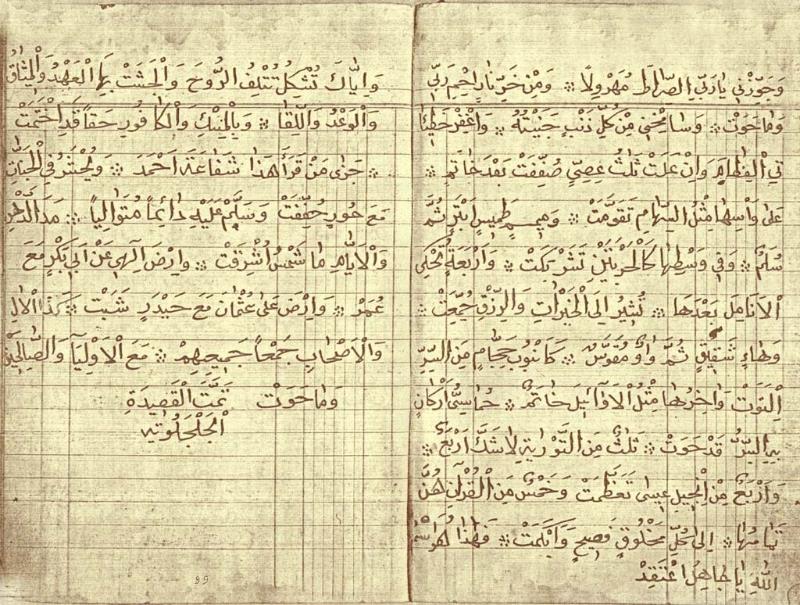 وَجَوِّزْنِي يَا رَبِّي الصِّرَاطَ مُهَرْوِلًا ❊ وَمِنْ حَرِّ نَارٍ احْمِ رَبِّي
وَمَا حَوَتْ ❊ وَسَامِحْنِي مِنْ كُلِّ ذَنْبٍ جَنَيْتُهُ ❊ وَاغْفِرْ خَطِيئَا
تِي الْعِظَامَ وَإِنْ عَلَتْ ثَلَاثُ عِصِيٍّ صُفِّفَتْ بَعْدَ خَاتَمٍ ❊
عَلَى رَأْسِهَا مِثْلُ السِّهَامِ تَقَوَّمَتْ ❊ وَمِيمٍ طَمِيسٍ أَبْتَرٍ ثُمَّ
سُلَّمٌ ❊ وَفِي وَسْطِهَا كَالْجَرَّتَيْنِ تَشَرْبَكَتْ ❊ وَأَرْبَعَةٌ تَحْكِي
الْأَنَامِلَ بَعْدَهَا ❊ تُشِيرُ إِلَى الْخَيْرَاتِ وَالرِّزْقِ جُمِّعَتْ ❊
وَهَاءٍ شَقِيقٍ ثُمَّ وَاوٍ مُقَوَّسٍ ❊ كَأُنْبُوبِ حَجَّامٍ مِنَ السِّرِّ
الْتَوَتْ وَآخِرُهَا مِثْلُ الْأَوَائِلِ خَاتَمٌ ❊ خُمَاسِيُّ أَرْكَانٍ
بِهِ السِّرُّ قَدْ حَوَتْ ❊ ثَلَاثٌ مِنَ التَّوْرَيةِ لَا شَكَّ أَرْبَعٌ ❊
وَأَرْبَعٌ مِنْ إِنْجِيلِ عِيسَى تَعَظَّمَتْ وَخَمْسٌ مِنَ الْقُرْآنِ هُنَّ
تَمَامُهَا ❊ إِلَى كُلِّ مَخْلُوقٍ فَصِيحٍ وَأَبْكَمَتْ ❊ فَهَذَا هُوَ اسْمُ
اللهِ يَا جَاهِلُ اعْتَقِدْ
وَإِيَّاكَ تُشْكِلْ تُتْلِفُ الرُّوحَ وَالْجَشَتْ بِهَا الْعَهْدُ وَالْمِيثَاقُ
وَالْوَعْدُ وَاللِّقَا ❊ وَبِالْمِسْكِ وَالْكَافُورِ حَقًّا قَدِ اخْتَمَتْ
❊ جَزَى مَنْ قَرَأَ هَذَا شَفَاعَةَ أَحْمَدَ ❊ وَيُحْشَرُ فِي الْجَنَّاتِ
مَعَ حُورٍ حُفِّفَتْ وَسَلِّمْ عَلَيْهِ دَائِمًا مُتَوَالِيًا ❊ مَدَا الدَّهْرِ
وَالْأَيَّامِ مَا شَمْسٌ أَشْرَقَتْ ❊ وَارْضَ إِلَهِي عَنْ أَبِي بَكْرٍ مَعَ
عُمَرْ ❊ وَارْضَ عَلَى عُثْمَانَ مَعَ حَيْدَرٍ ثَبَتْ ❊ كَذَا الْآلُ
وَالْأَصْحَابِ جَمْعًا جَمِيعِهِمْ ❊ مَعَ الْأَوْلِيَا وَالصَّالِحِينَ
وَمَا حَوَتْ تَمَّتِ الْقَصِيدَةِ
الْجَلْجَلُوتِيه